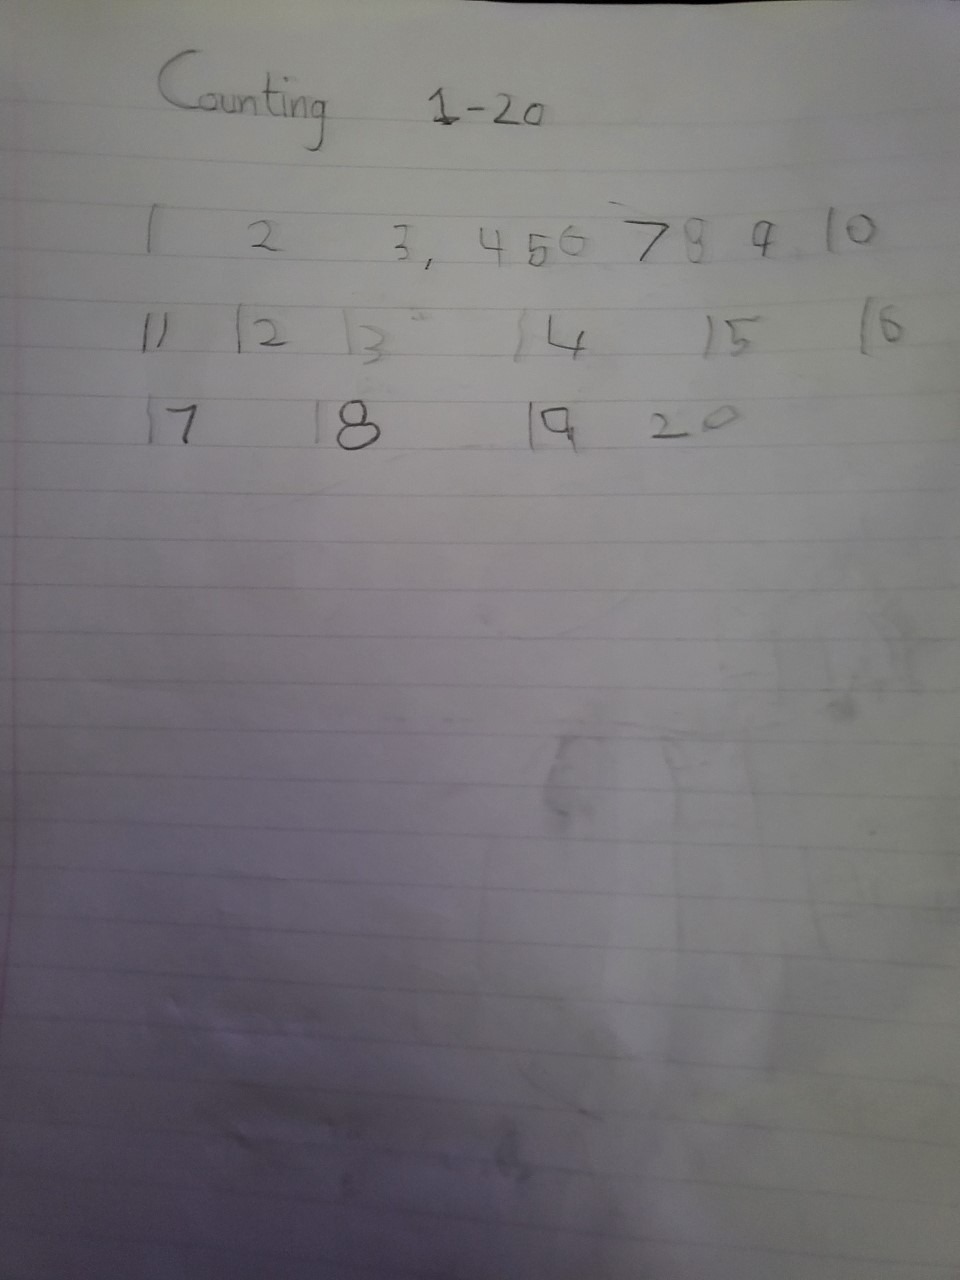 Counting 1-20
1 2 3, 4 5 6 7 8 9 10
11 12 13 14 15 16
17 18 19 20